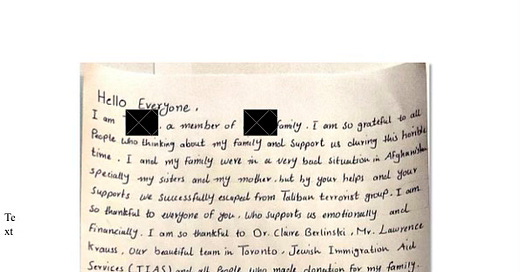 Te
xt
Hello Everyone,
I am , a member of family. I am so grateful to all
People who thinking about my family and Support us during this horrible
time. I and my family were in a very bad situation in Afghanistan
specially my sisters and my mother, but by your helps and your
Supports we Successfully escaped from Taliban terrorist group. I am
So thankful to everyone of you, who supports us emotionally and
Financially. I am so thankful to Dr. Claire Berlinski, Mr. Lawrence
Krauss, our beautiful team in Toronto, Jewish Immigration Aid
Services (JIAS) and all People who made donation for my family.